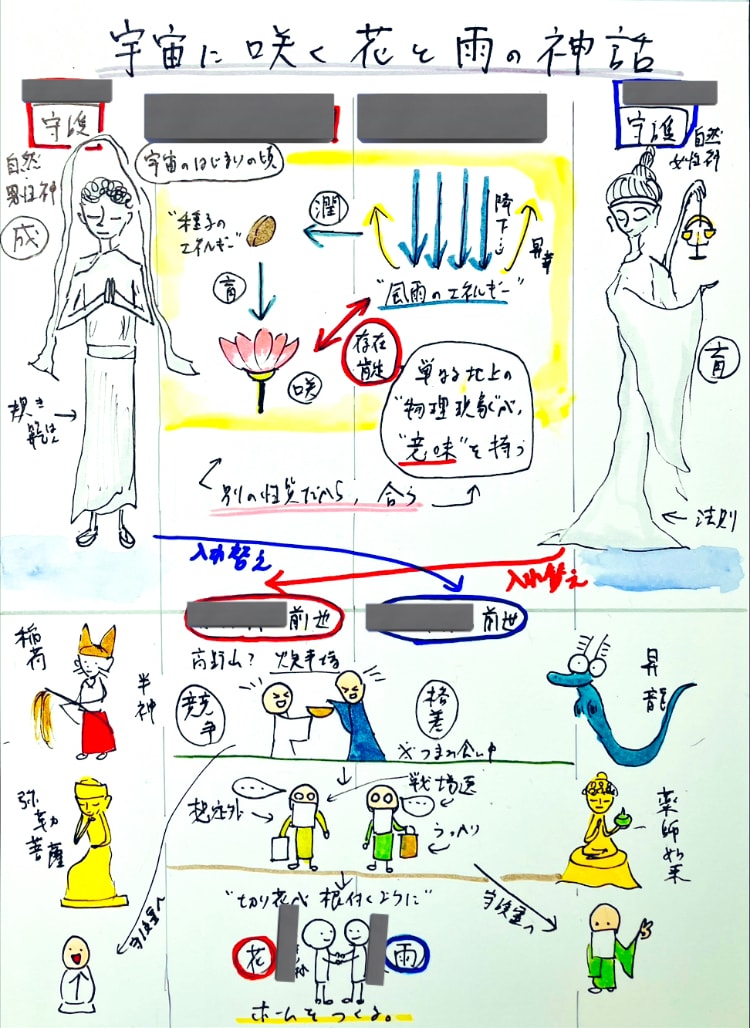 宇宙に咲く花と雨の神話
守護
守護
自然
男性神
成
自然
女性神
育
宇宙のはじまりの頃
"種子の
エネルギー"
潤
育
咲
降下…
昇華
"風雨のエネルギー"
存在
前生
単なる地上の
"物理現象"が、
"意味"を持つ
別の性質だから、合う
法則
入れ替え
入れ替え
前世
前世
稲荷
半神
高野山? 炊事場
競争
格差
※つまみ食い中
昇龍
弥勒菩薩
想定外
戦場医
うっかり
薬師如来
守護霊へ
守護霊へ
"切り花が根付くように"
花
雨
ホームをつくる。